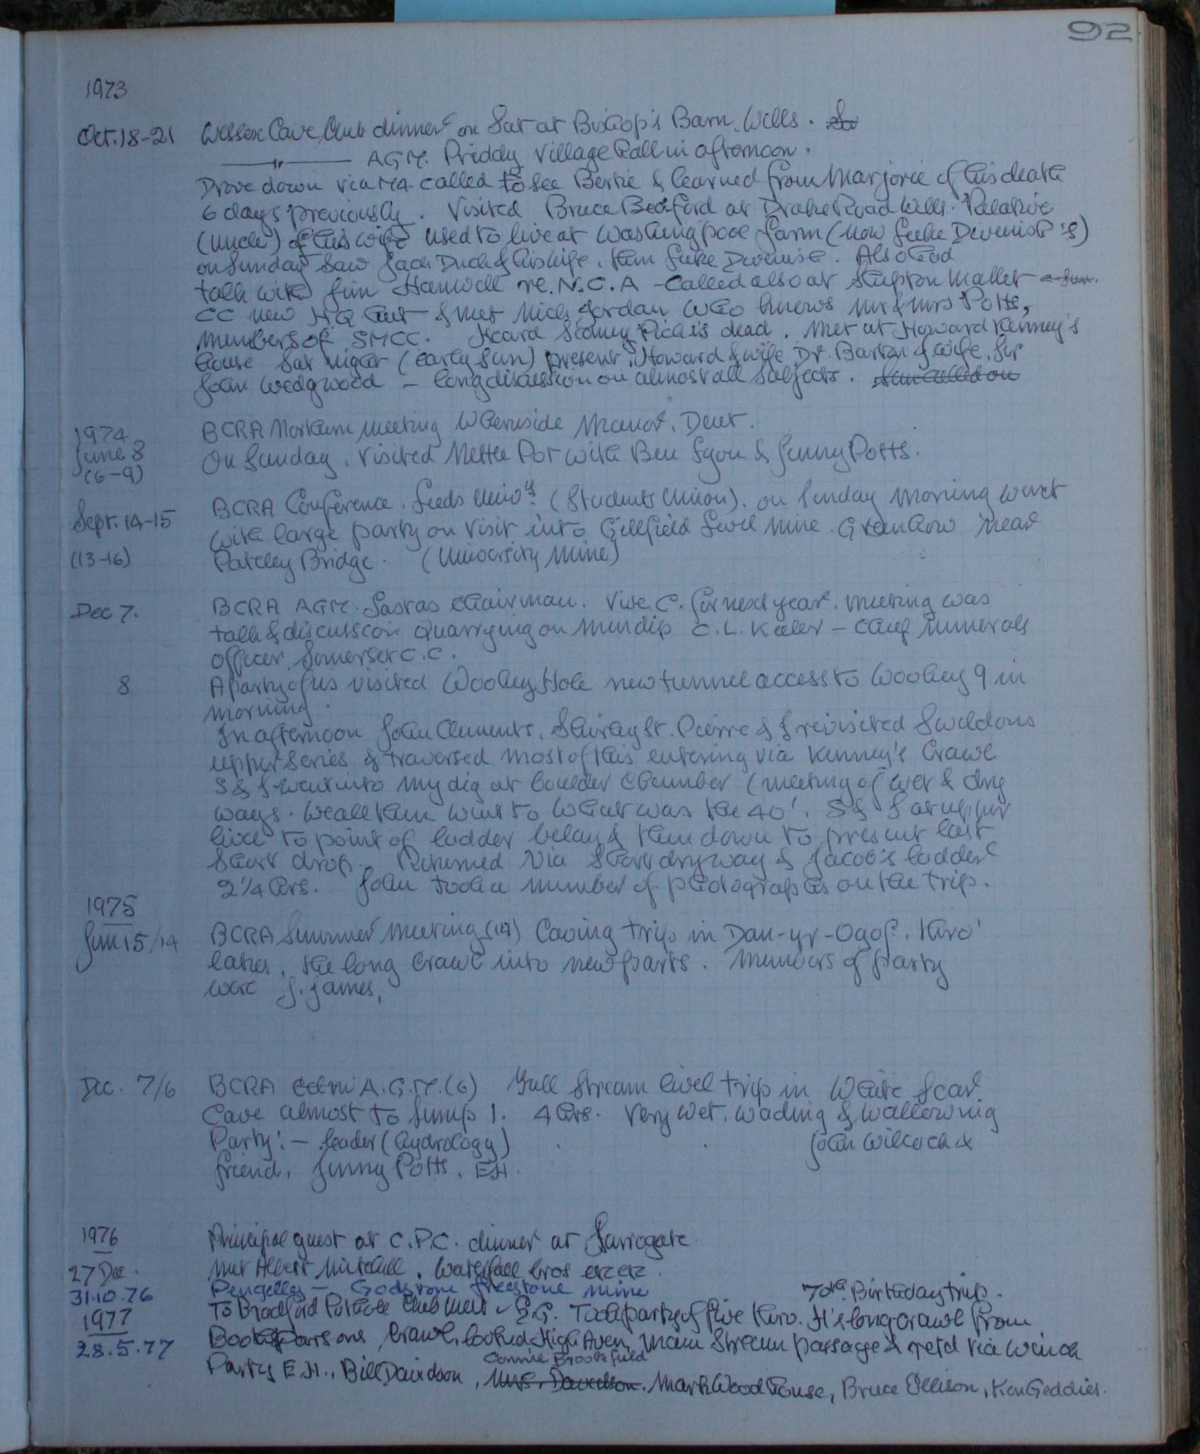 92
1973
Oct. 18-21 Wessex Cave Club dinner on Sat at Bishop's Barn, Wells.
—"— AGM. Priddy Village Hall in afternoon.
Drove down via M4 called to see Bertie & learned from Marjorie of his death
6 days previously. Visited Bruce Bedford at Drake Road Wells. Relative
(uncle) of his wife used to live at Washingpool farm (now Luke Devenish's)
on Sunday saw Jack Duck & his wife, then Luke Devenish. Also had
talk with Jim Hanwell re. N.C.A - Called also at Shepton Mallet
CC new HQ hut & met Mick Jordan who knows Mr & Mrs Potts,
members of SMCC. Heard Sidney Pick is dead. Met at Howard Kenney's
house Sat night (early Sun) present: Howard & wife, Dr. Barker & wife, Sir
John Wedgwood - long discussion on almost all subjects.
1974
June 8 BCRA Northern meeting Whernside Manor, Dent.
(6-9) On Sunday, visited Mettle Pot with Ben Lyon & Jenny Potts.
Sept. 14-15 BCRA Conference. Leeds Univ. (Students Union). on Sunday morning went
with large party on visit into Gillfield Level Mine. Greenhow near
(13-16) Pateley Bridge. (University Mine)
Dec 7. BCRA AGM. Last as chairman. Vice C. for next year. Meeting was
talk & discussion Quarrying on Mendip C.L. - Chief Minerals
officer, Somerset C.C.
8 A party of us visited Wookey Hole new tunnel access to Wookey 9 in
morning.
In afternoon John Clements, St. Pierre & I revisited Swildons
upper series & traversed most of this entering via Kenney's Crawl
S & I went into my dig at boulder chamber (meeting of wet & dry
ways. We all then went to what was the 40'. S & I at upper
live to point of ladder belay & then down to present last
short drop. Returned via short dryway & Jacob's ladder
2¼ hrs. John took a number of photographs on the trip.
1975
Jun 15/14 BCRA Summer Meeting (14) Caving trip in Dan-yr-Ogof. thro'
lakes, the long crawl into new parts. Members of party
were J. James,
Dec. 7/6 BCRA A.G.M. (6) Full Stream level trip in White Scar
Cave almost to Sump 1. 4 hrs. Very wet. Wading & wallowing
Party:- leader (hydrology) John Wilcock &
friend, Jenny Potts, E.H.
1976 Principal guest at C.P.C. dinner at Harrogate
27 Dec. Met Albert Mitchell,
31.10.76 Pengelley - Godstone firestone mine 70th Birthday trip.
1977 To Bradford Pothole Club meet - G.G. Took party of five thro. H's long crawl from
28.5.77 crawl, looked High Aven, main stream passage & ret'd via winch
Connie Brooksfield
Party E.H., Bill Davidson, Mrs. Davidson, Mark Woodhouse, Bruce Ellison, Ken Geddies.